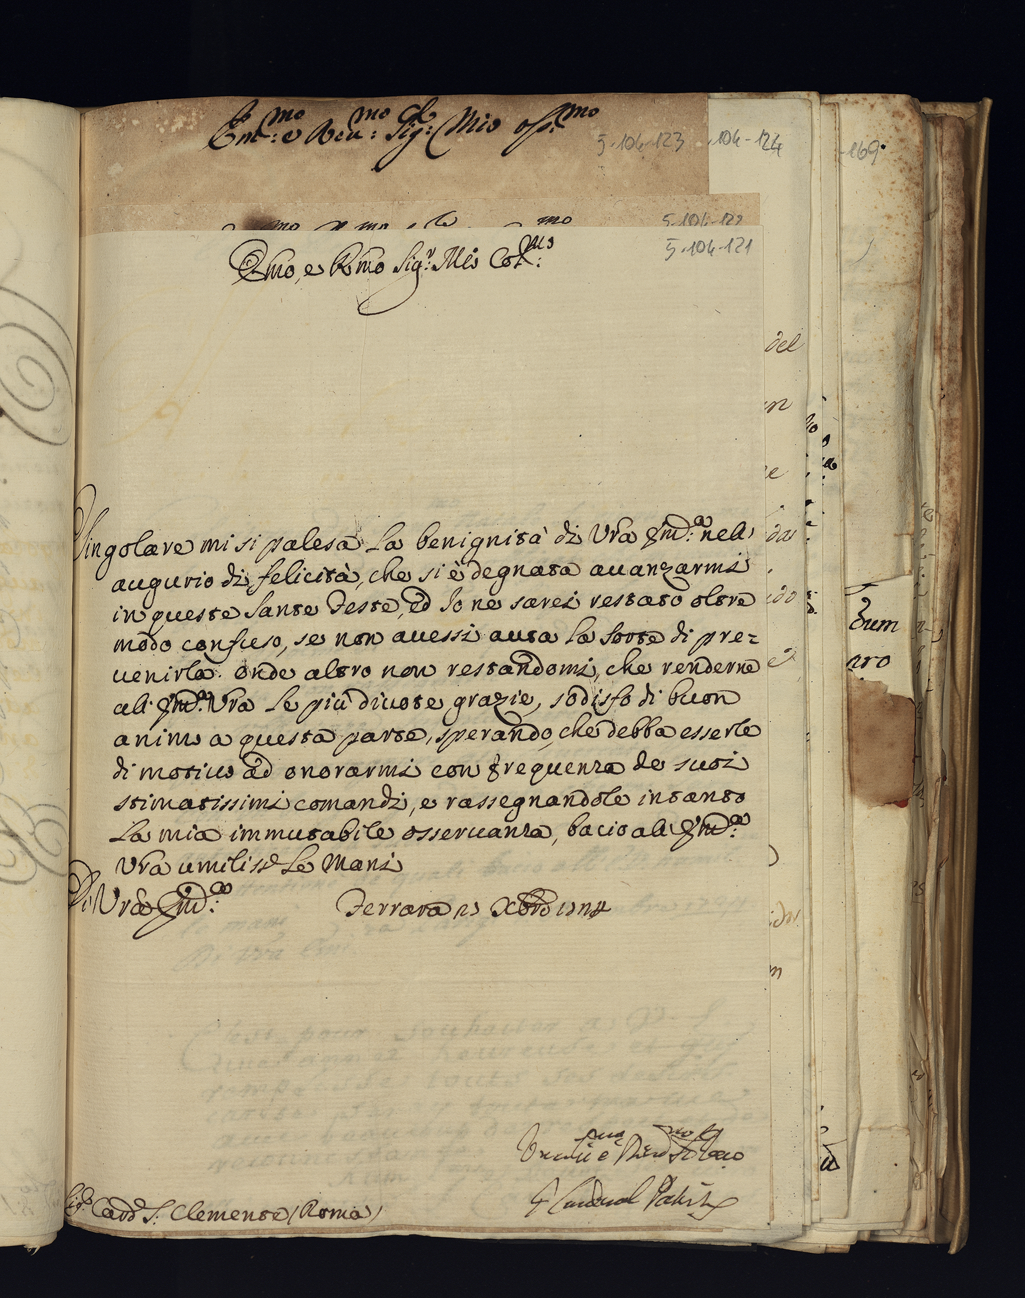 Em:mo e Reu:mo Sig:r Mio oss:mo
5-104-123
-104-124
-169
5-104-122
5-104-121
Emo, e Rmo Sig:r Mio Col:mo
del
Singolare mi si palesa La benignità di Vra Em:a nell'
augurio di felicità, che si è degnata auanzarmi
in queste Sante Feste, ed Io ne sarei restato oltre
modo confuso, se non auessi auta La sorte di pre=
uenirla: onde altro non restandomi, che renderne
all' Em:a Vra Le più diuote grazie, sodisfo di buon
animo a questa parte, sperando, che debba esserle
di motiuo ad onorarmi con frequenza de suoi
stimatissimi comandi, e rassegnandole intanto
La mia immutabile osseruanza, bacio all' Em:a
Vra umiliss:e Le Mani
Di Vra Em:a Ferrara 23 Xbre 1724
Eum
aro
Sig:r Card S: Clemente (Roma)